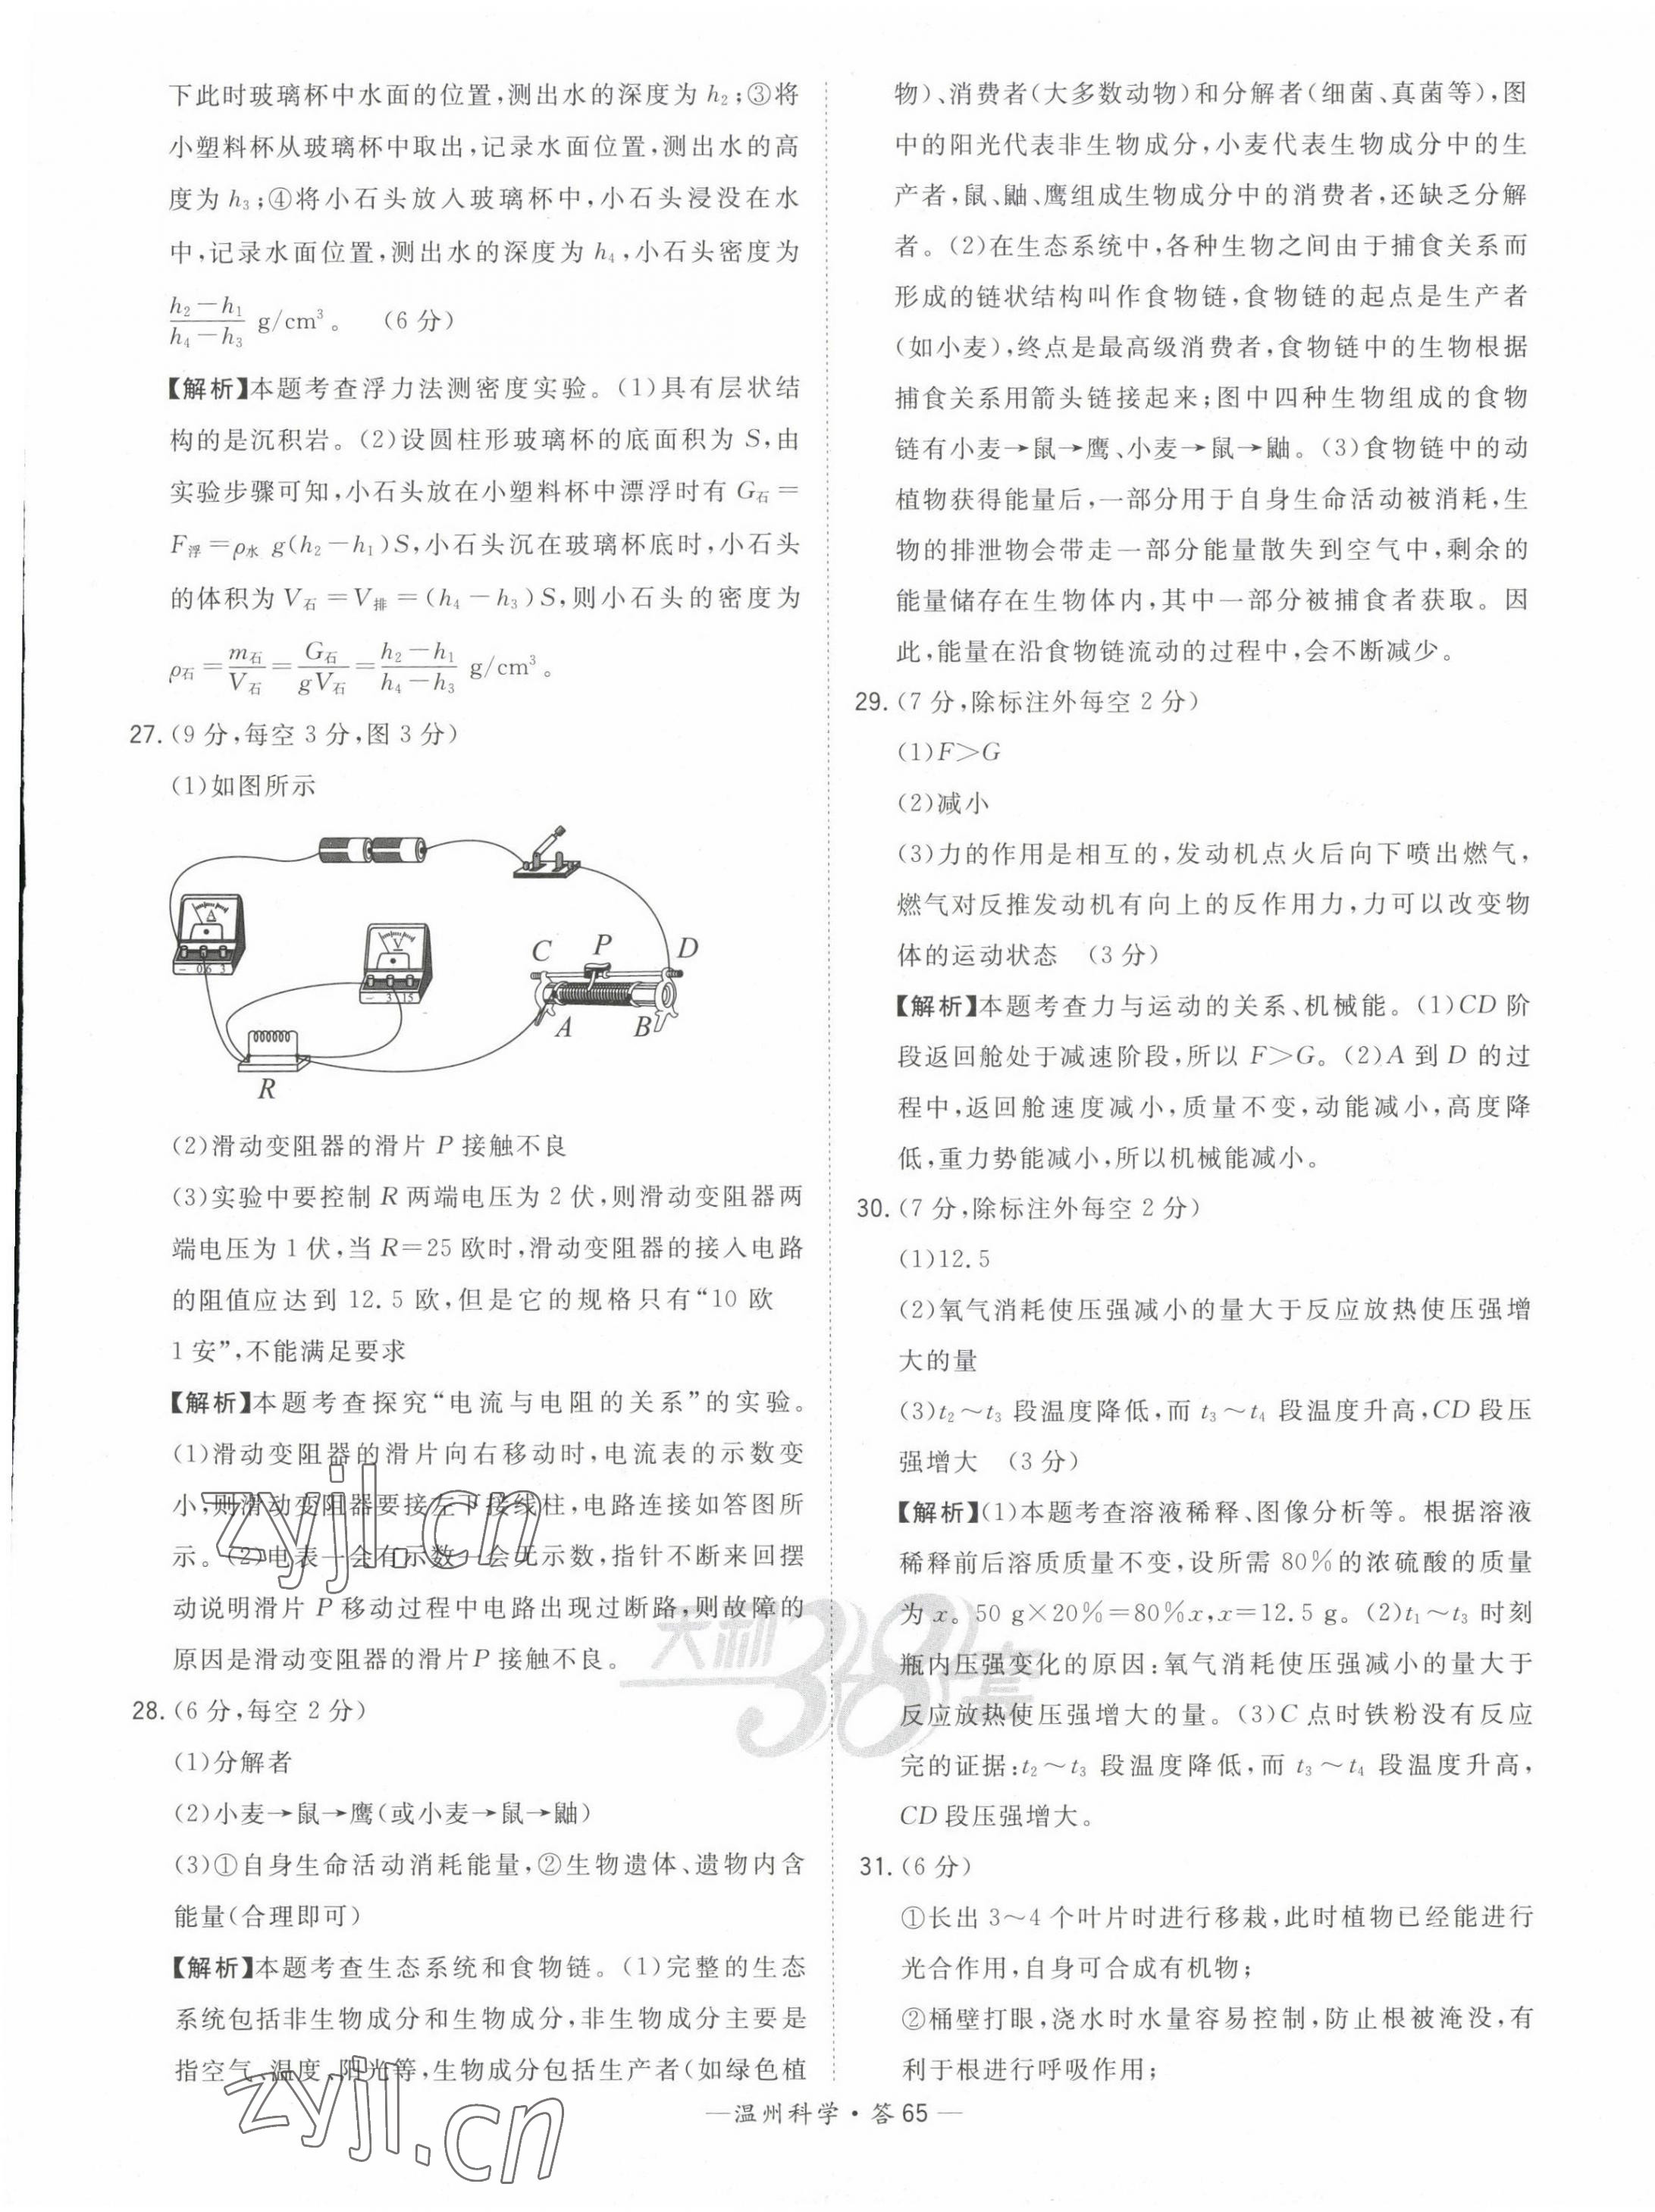 下此时玻璃杯中水面的位置,测出水的深度为 h₂;③将
小塑料杯从玻璃杯中取出,记录水面位置,测出水的高
度为 h₃;④将小石头放入玻璃杯中,小石头浸没在水
中,记录水面位置,测出水的深度为 h₄,小石头密度为
(h₂－h₁)/(h₄－h₃) g/cm³。 (6 分)
【解析】本题考查浮力法测密度实验。(1)具有层状结
构的是沉积岩。(2)设圆柱形玻璃杯的底面积为 S,由
实验步骤可知,小石头放在小塑料杯中漂浮时有 G石＝
F浮＝ρ水 g(h₂－h₁)S,小石头沉在玻璃杯底时,小石头
的体积为 V石＝V排＝(h₄－h₃)S,则小石头的密度为
ρ石＝m石/V石＝G石/gV石＝(h₂－h₁)/(h₄－h₃) g/cm³。
27.(9 分,每空 3 分,图 3 分)
(1)如图所示
A
－ 0.6 3
V
－ 3 15
C P D
A B
R
(2)滑动变阻器的滑片 P 接触不良
(3)实验中要控制 R 两端电压为 2 伏,则滑动变阻器两
端电压为 1 伏,当 R＝25 欧时,滑动变阻器的接入电路
的阻值应达到 12.5 欧,但是它的规格只有“10 欧
1 安”,不能满足要求
【解析】本题考查探究“电流与电阻的关系”的实验。
(1)滑动变阻器的滑片向右移动时,电流表的示数变
小,则滑动变阻器要接左下接线柱,电路连接如答图所
示。(2)电表一会有示数一会无示数,指针不断来回摆
动说明滑片 P 移动过程中电路出现过断路,则故障的
原因是滑动变阻器的滑片P 接触不良。
28.(6 分,每空 2 分)
(1)分解者
(2)小麦→鼠→鹰(或小麦→鼠→鼬)
(3)①自身生命活动消耗能量,②生物遗体、遗物内含
能量(合理即可)
【解析】本题考查生态系统和食物链。(1)完整的生态
系统包括非生物成分和生物成分,非生物成分主要是
指空气、温度、阳光等,生物成分包括生产者(如绿色植
物)、消费者(大多数动物)和分解者(细菌、真菌等),图
中的阳光代表非生物成分,小麦代表生物成分中的生
产者,鼠、鼬、鹰组成生物成分中的消费者,还缺乏分解
者。(2)在生态系统中,各种生物之间由于捕食关系而
形成的链状结构叫作食物链,食物链的起点是生产者
(如小麦),终点是最高级消费者,食物链中的生物根据
捕食关系用箭头链接起来;图中四种生物组成的食物
链有小麦→鼠→鹰、小麦→鼠→鼬。(3)食物链中的动
植物获得能量后,一部分用于自身生命活动被消耗,生
物的排泄物会带走一部分能量散失到空气中,剩余的
能量储存在生物体内,其中一部分被捕食者获取。因
此,能量在沿食物链流动的过程中,会不断减少。
29.(7 分,除标注外每空 2 分)
(1)F＞G
(2)减小
(3)力的作用是相互的,发动机点火后向下喷出燃气,
燃气对反推发动机有向上的反作用力,力可以改变物
体的运动状态 (3 分)
【解析】本题考查力与运动的关系、机械能。(1)CD 阶
段返回舱处于减速阶段,所以 F＞G。(2)A 到 D 的过
程中,返回舱速度减小,质量不变,动能减小,高度降
低,重力势能减小,所以机械能减小。
30.(7 分,除标注外每空 2 分)
(1)12.5
(2)氧气消耗使压强减小的量大于反应放热使压强增
大的量
(3)t₂～t₃ 段温度降低,而 t₃～t₄ 段温度升高,CD 段压
强增大 (3 分)
【解析】(1)本题考查溶液稀释、图像分析等。根据溶液
稀释前后溶质质量不变,设所需 80%的浓硫酸的质量
为 x。50 g×20%＝80%x,x＝12.5 g。(2)t₁～t₃ 时刻
瓶内压强变化的原因:氧气消耗使压强减小的量大于
反应放热使压强增大的量。(3)C 点时铁粉没有反应
完的证据:t₂～t₃ 段温度降低,而 t₃～t₄ 段温度升高,
CD 段压强增大。
31.(6 分)
①长出 3～4 个叶片时进行移栽,此时植物已经能进行
光合作用,自身可合成有机物;
②桶壁打眼,浇水时水量容易控制,防止根被淹没,有
利于根进行呼吸作用;
—温州科学·答 65 —
zyjl.cn
天利38套
zyjl.cn